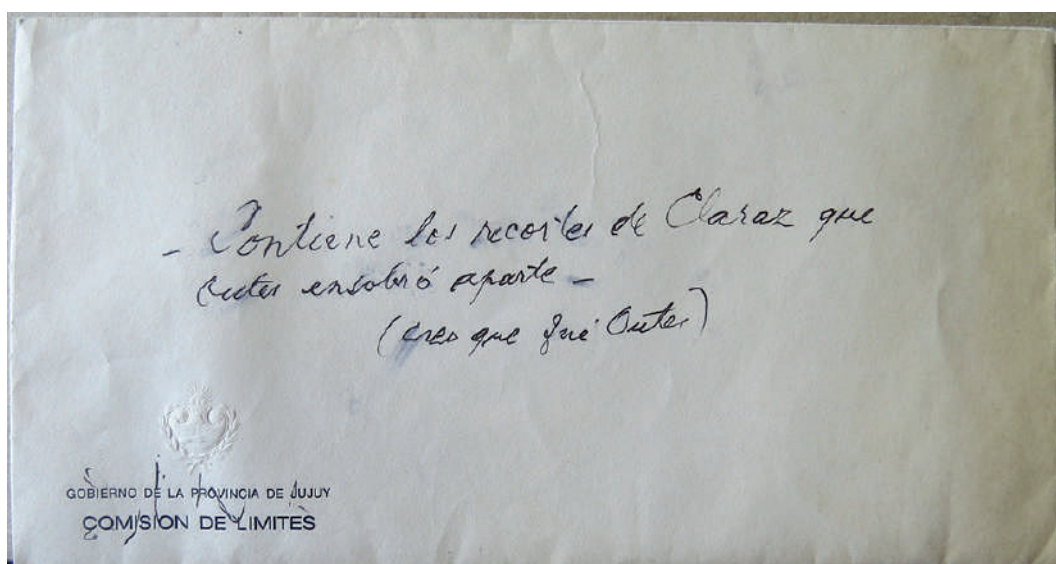 - Contiene los recortes de Claraz que
Outes ensobró aparte -
(creo que fué Outes)
GOBIERNO DE LA PROVINCIA DE JUJUY
COMISION DE LIMITES